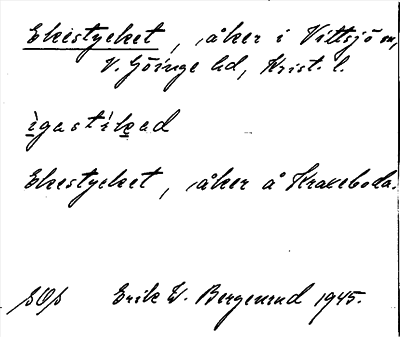 Ekestycket, åker i Vittsjö sn,
V. Göinge hd, Krist. l.
ìgastíkad
Ekestycket, åker å Krakeboda.
Erik W. Bergenrud 1945.